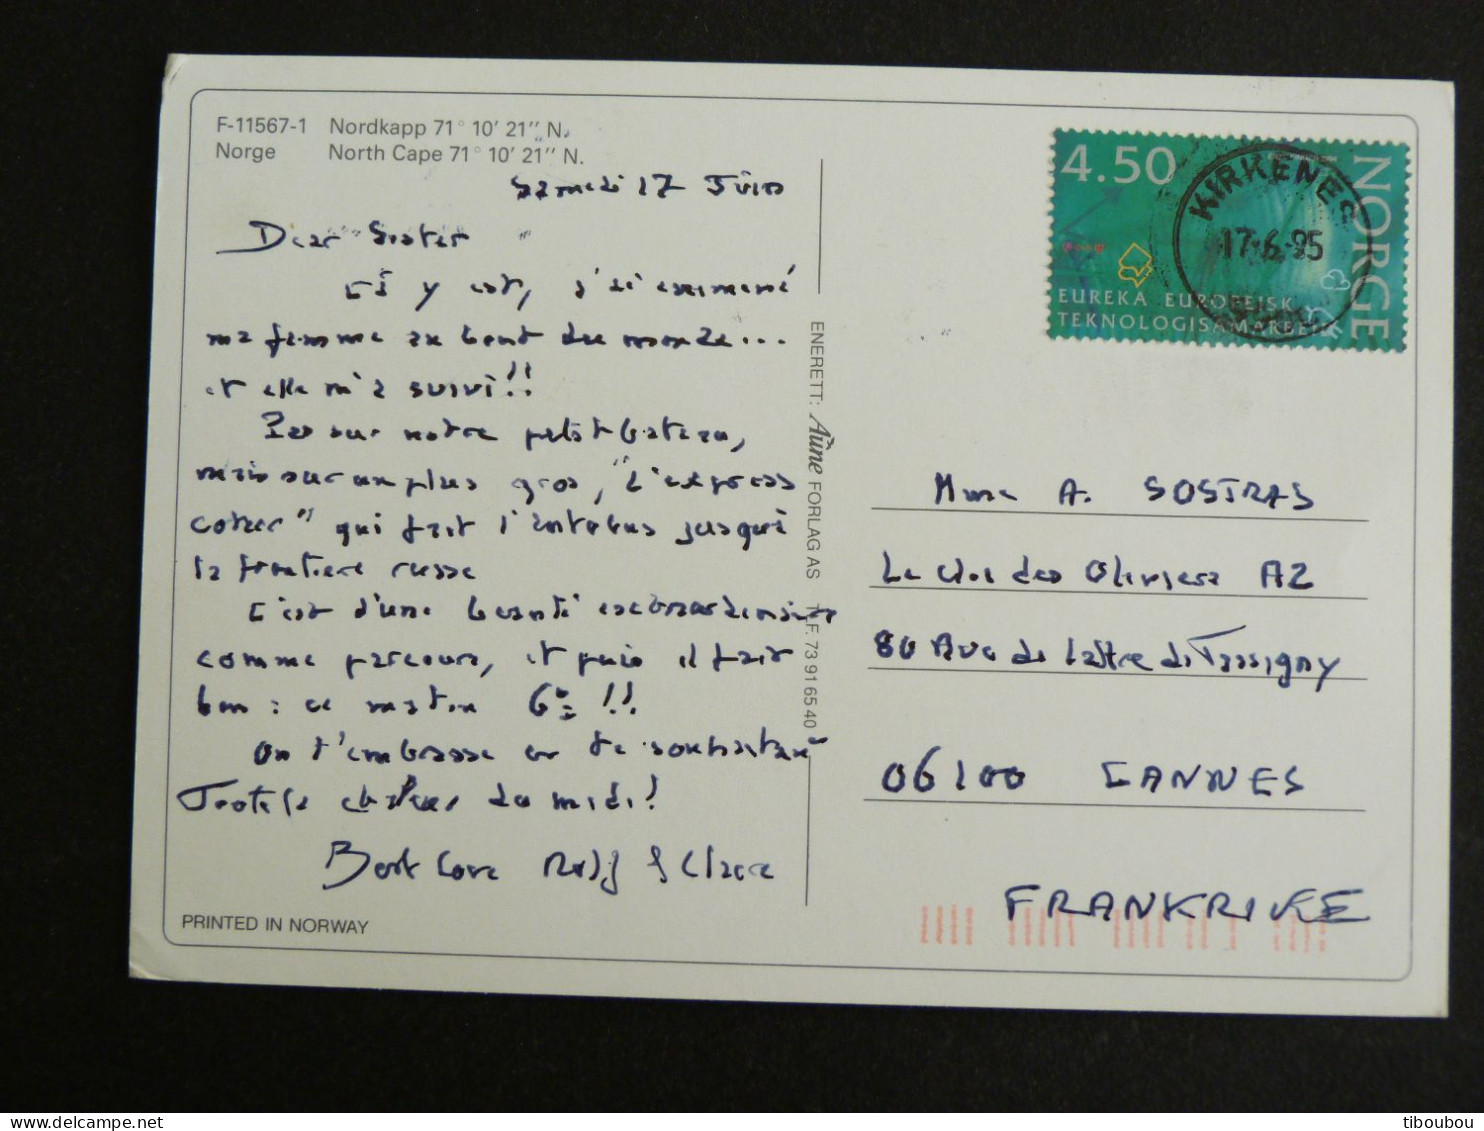 F-11567-1 Nordkapp 71° 10' 21'' N.
Norge North Cape 71° 10' 21'' N.
Samedi 17 Juin
Dear Sister
Ça y est, j'ai emmené
ma femme au bout du monde...
et elle m'a suivi!!
Pas sur notre petit bateau,
mais sur un plus gros, "L'express
cotier" qui fait l'autobus jusqu'à
la frontiere russe
C'est d'une beauté extraordinaire
comme parcours, et puis il fait
bon : ce matin 6° !!
On t'embrasse en te souhaitant
Toute la chaleur du midi!
Best Love & Claire
PRINTED IN NORWAY
ENERETT: Aune FORLAG AS TLF. 73 91 65 40
4.50
NORGE
EUREKA EUROPEISK
TEKNOLOGISAMARBEID
KIRKENES
17-6-95
Mme A. SOSTRAS
Le Clos des Oliviers A2
80 Ave de Lattre de Tassigny
06400 CANNES
FRANKRIKE
tiboubou